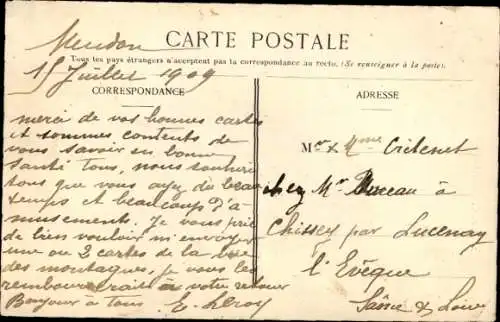 Meudon
CARTE POSTALE
Tous les pays étrangers n'acceptent pas la correspondance au recto. (Se renseigner à la poste).
15 Juillet 1909
CORRESPONDANCE
merci de vos bonnes cartes
et sommes contents de
vous savoir en bonne
santé tous, nous souhai
tous que vous ayez du beau
temps et beaucoup d'a
musements. Je vous prie
de bien vouloir m'envoyer
une ou 2 cartes de la
des montagnes, je vous les
rembourserais à votre retour
Bonjour à tous E. Leroy
ADRESSE
Mr & Mme
chez Mr à
Chissey par Lucenay
l'Evêque
Saône & Loire